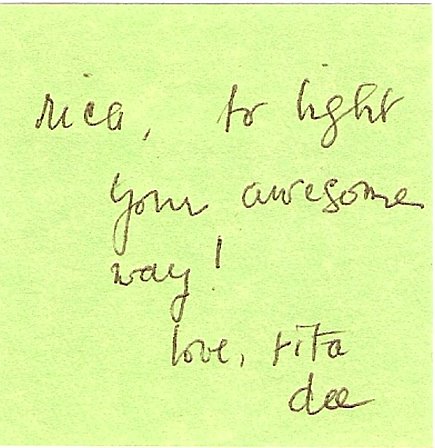 rica, to light
your awesome
way!
love, tita
dee